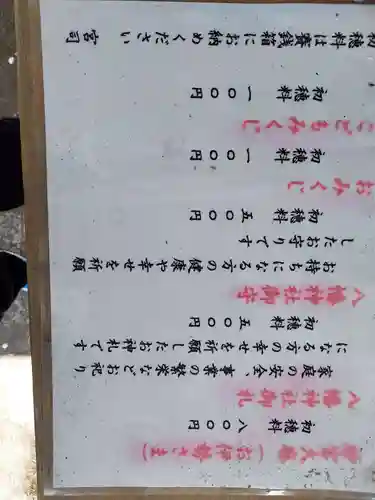 神宮大麻（お伊勢さま）
初穂料　八００円
八幡神社御札
家庭の安全、事業の繁栄などお祀り
になる方の幸せを祈願したお神札です
初穂料　五００円
八幡神社御守
お持ちになる方の健康や幸せを祈願
したお守りです
初穂料　五００円
おみくじ
初穂料　一００円
こどもみくじ
初穂料　一００円
初穂料は賽銭箱にお納めください　宮司